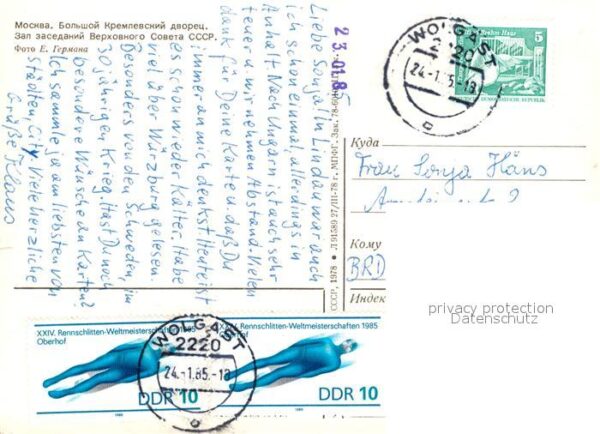 Москва. Большой Кремлевский дворец.
Зал заседаний Верховного Совета СССР.
Фото Е. Германа
Liebe Sonja! In Lindau war auch
ich schon einmal, allerdings in
Anhalt. Nach Ungarn ist auch sehr
teuer u. wir nehmen Abstand. Vielen
dank für Deine Karte u. daß Du
immer an mich denkst. Heute ist
es schon wieder kälter. Habe
viel über Würzburg gelesen.
Besonders von den Schweden, im
30 jährigen Krieg. Hast Du noch
besondere Wünsche an Karten?
Ich sammle ja am liebsten von
Städten City. Viele herzliche
Grüße Klaus
23.01.85
СССР, 1978
WOLGAST
2220
24.-1.85.-18
5
DEUTSCHE DEMOKRATISCHE REPUBLIK
Куда
Frau Sonja Häns
9
Кому
BRD
Индек
privacy protection
Datenschutz
XXIV. Rennschlitten-Weltmeisterschaften 1985
Oberhof
DDR 10
XXIV. Rennschlitten-Weltmeisterschaften 1985
Oberhof
DDR 10
WOLGAST
2220
24.-1.85.-18